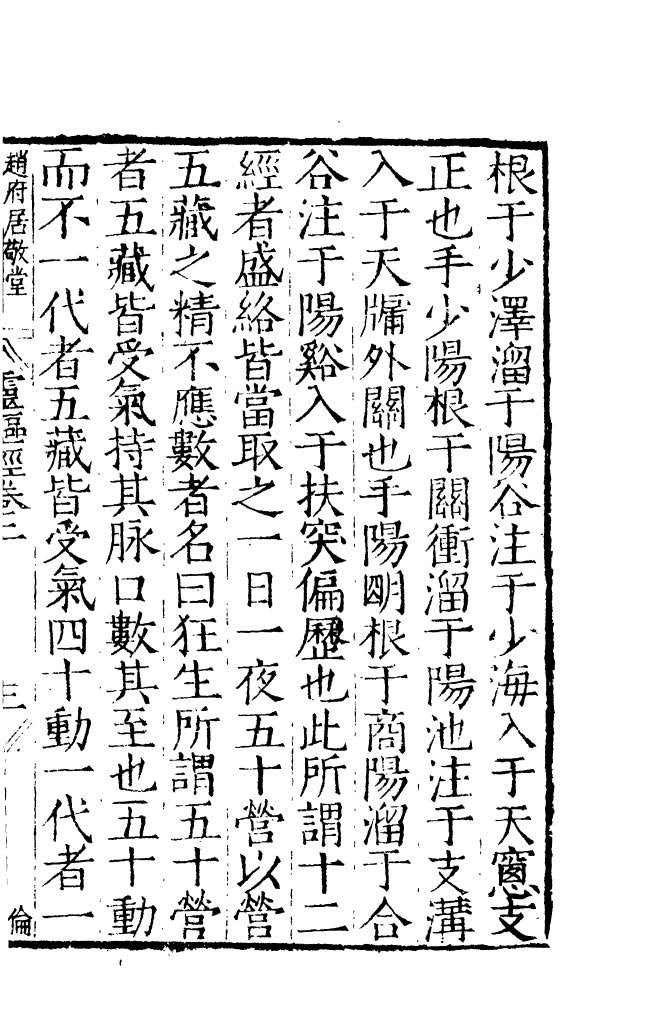 根于少澤溜于陽谷注于少海入于天窻支
正也手少陽根于關衝溜于陽池注于支溝
入于天牖外關也手陽明根于商陽溜于合
谷注于陽谿入于扶突偏歷也此所謂十二
經者盛絡皆當取之一日一夜五十營以營
五藏之精不應數者名曰狂生所謂五十營
者五藏皆受氣持其脉口數其至也五十動
而不一代者五藏皆受氣四十動一代者一
趙府居敬堂 靈樞經卷二 三 倫